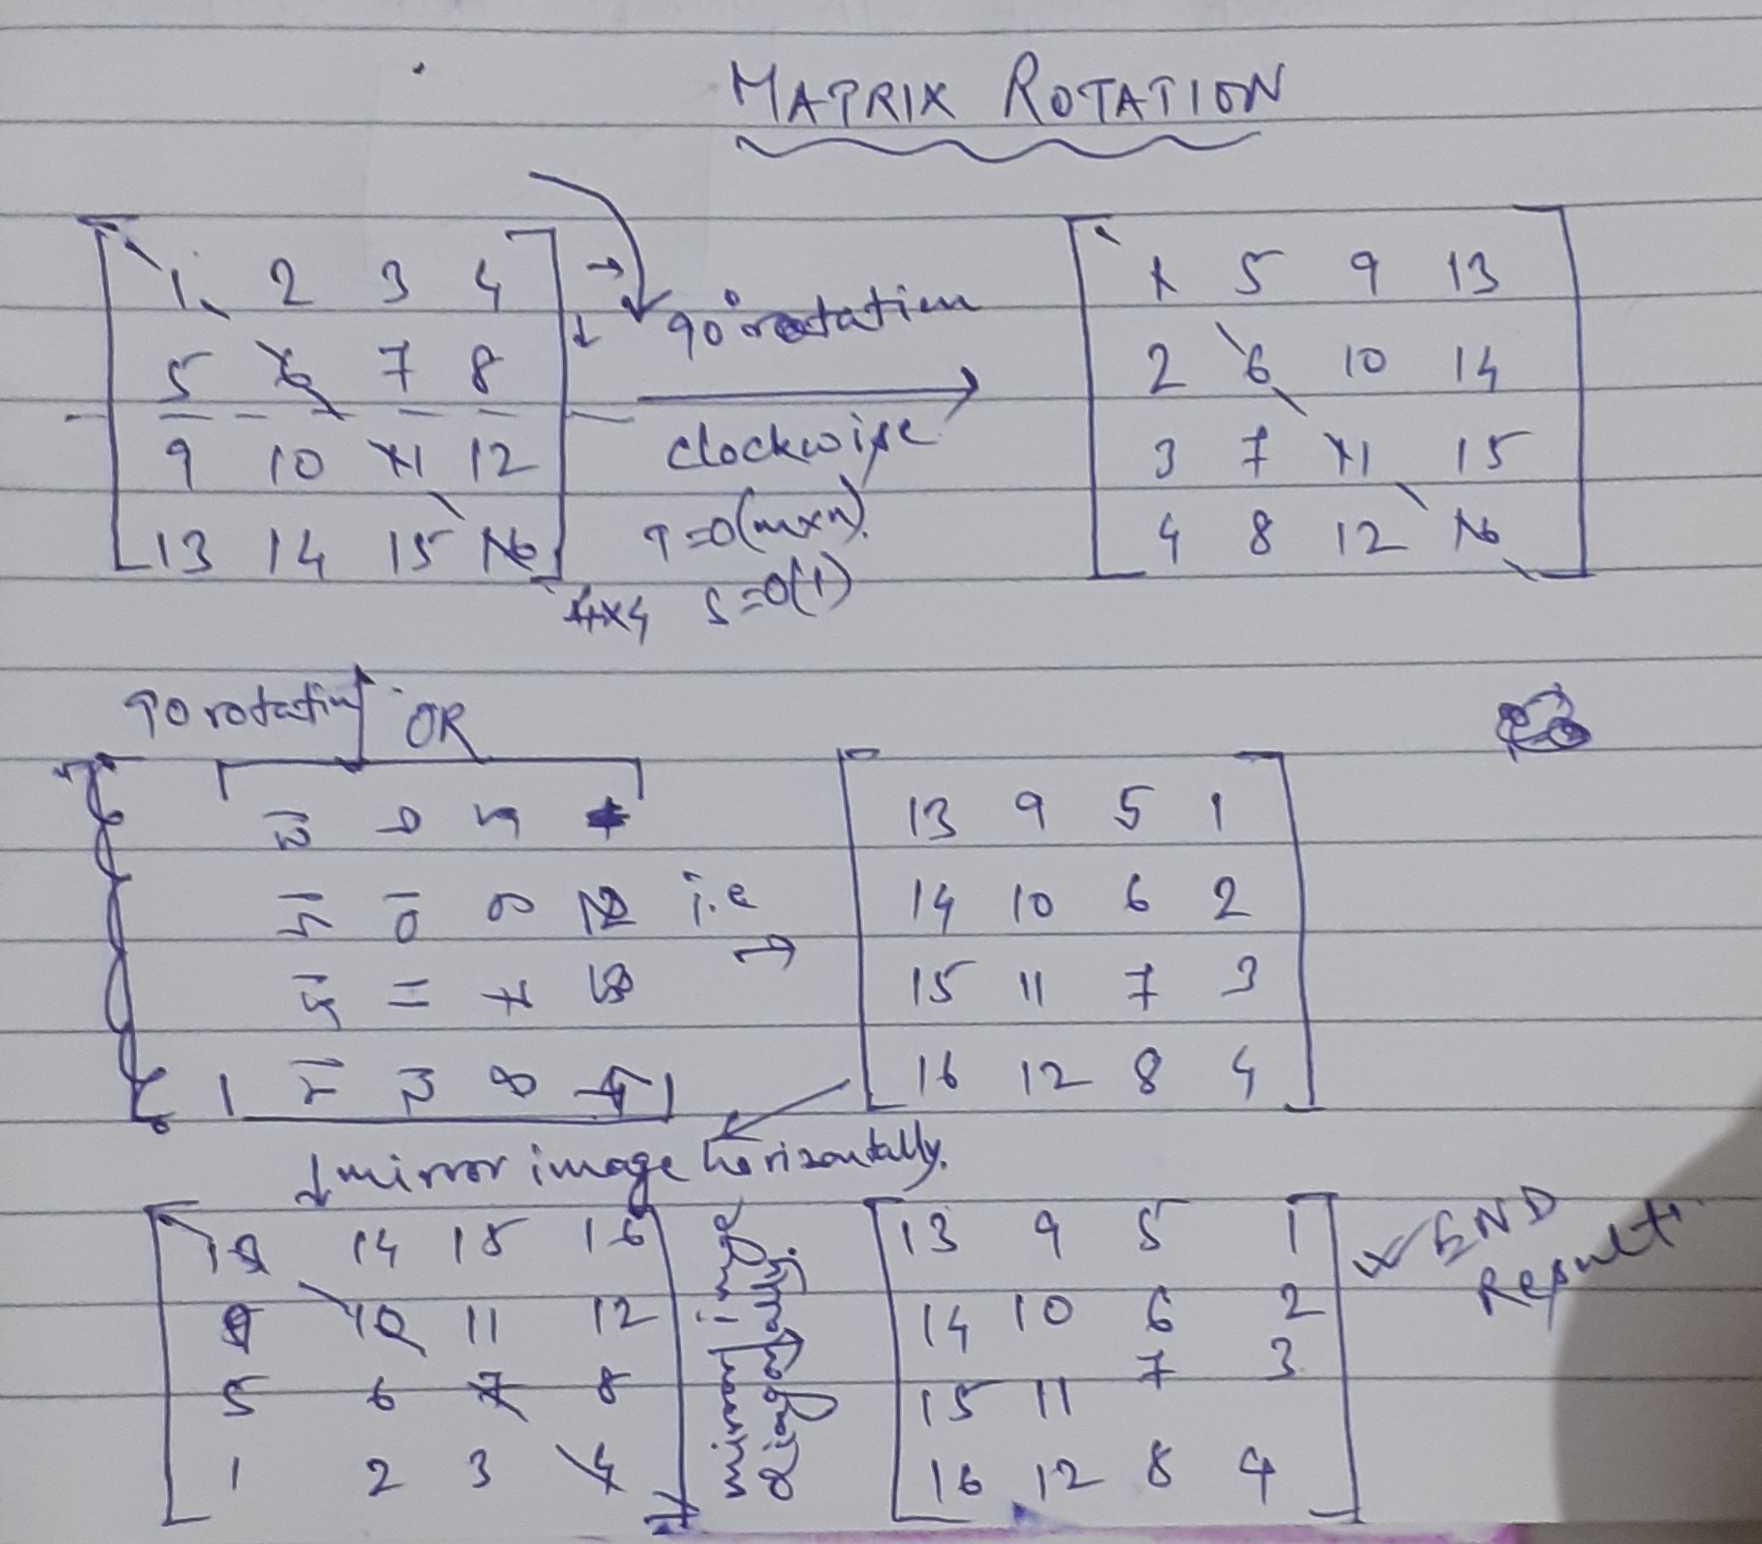 MATRIX ROTATION
1 2 3 4
5 6 7 8
9 10 11 12
13 14 15 16
4x4
90° rotation
clockwise
T=O(mxn).
S=O(1)
1 5 9 13
2 6 10 14
3 7 11 15
4 8 12 16
90 rotation OR
13 9 5 1
10
11 7
12 8 4
i.e
13 9 5 1
14 10 6 2
15 11 7 3
16 12 8 4
mirror image horizontally.
13 14 15 16
9 10 11 12
5 6 7 8
1 2 3 4
mirror image
Diagonally.
13 9 5 1
14 10 6 2
15 11 7 3
16 12 8 4
END
Result